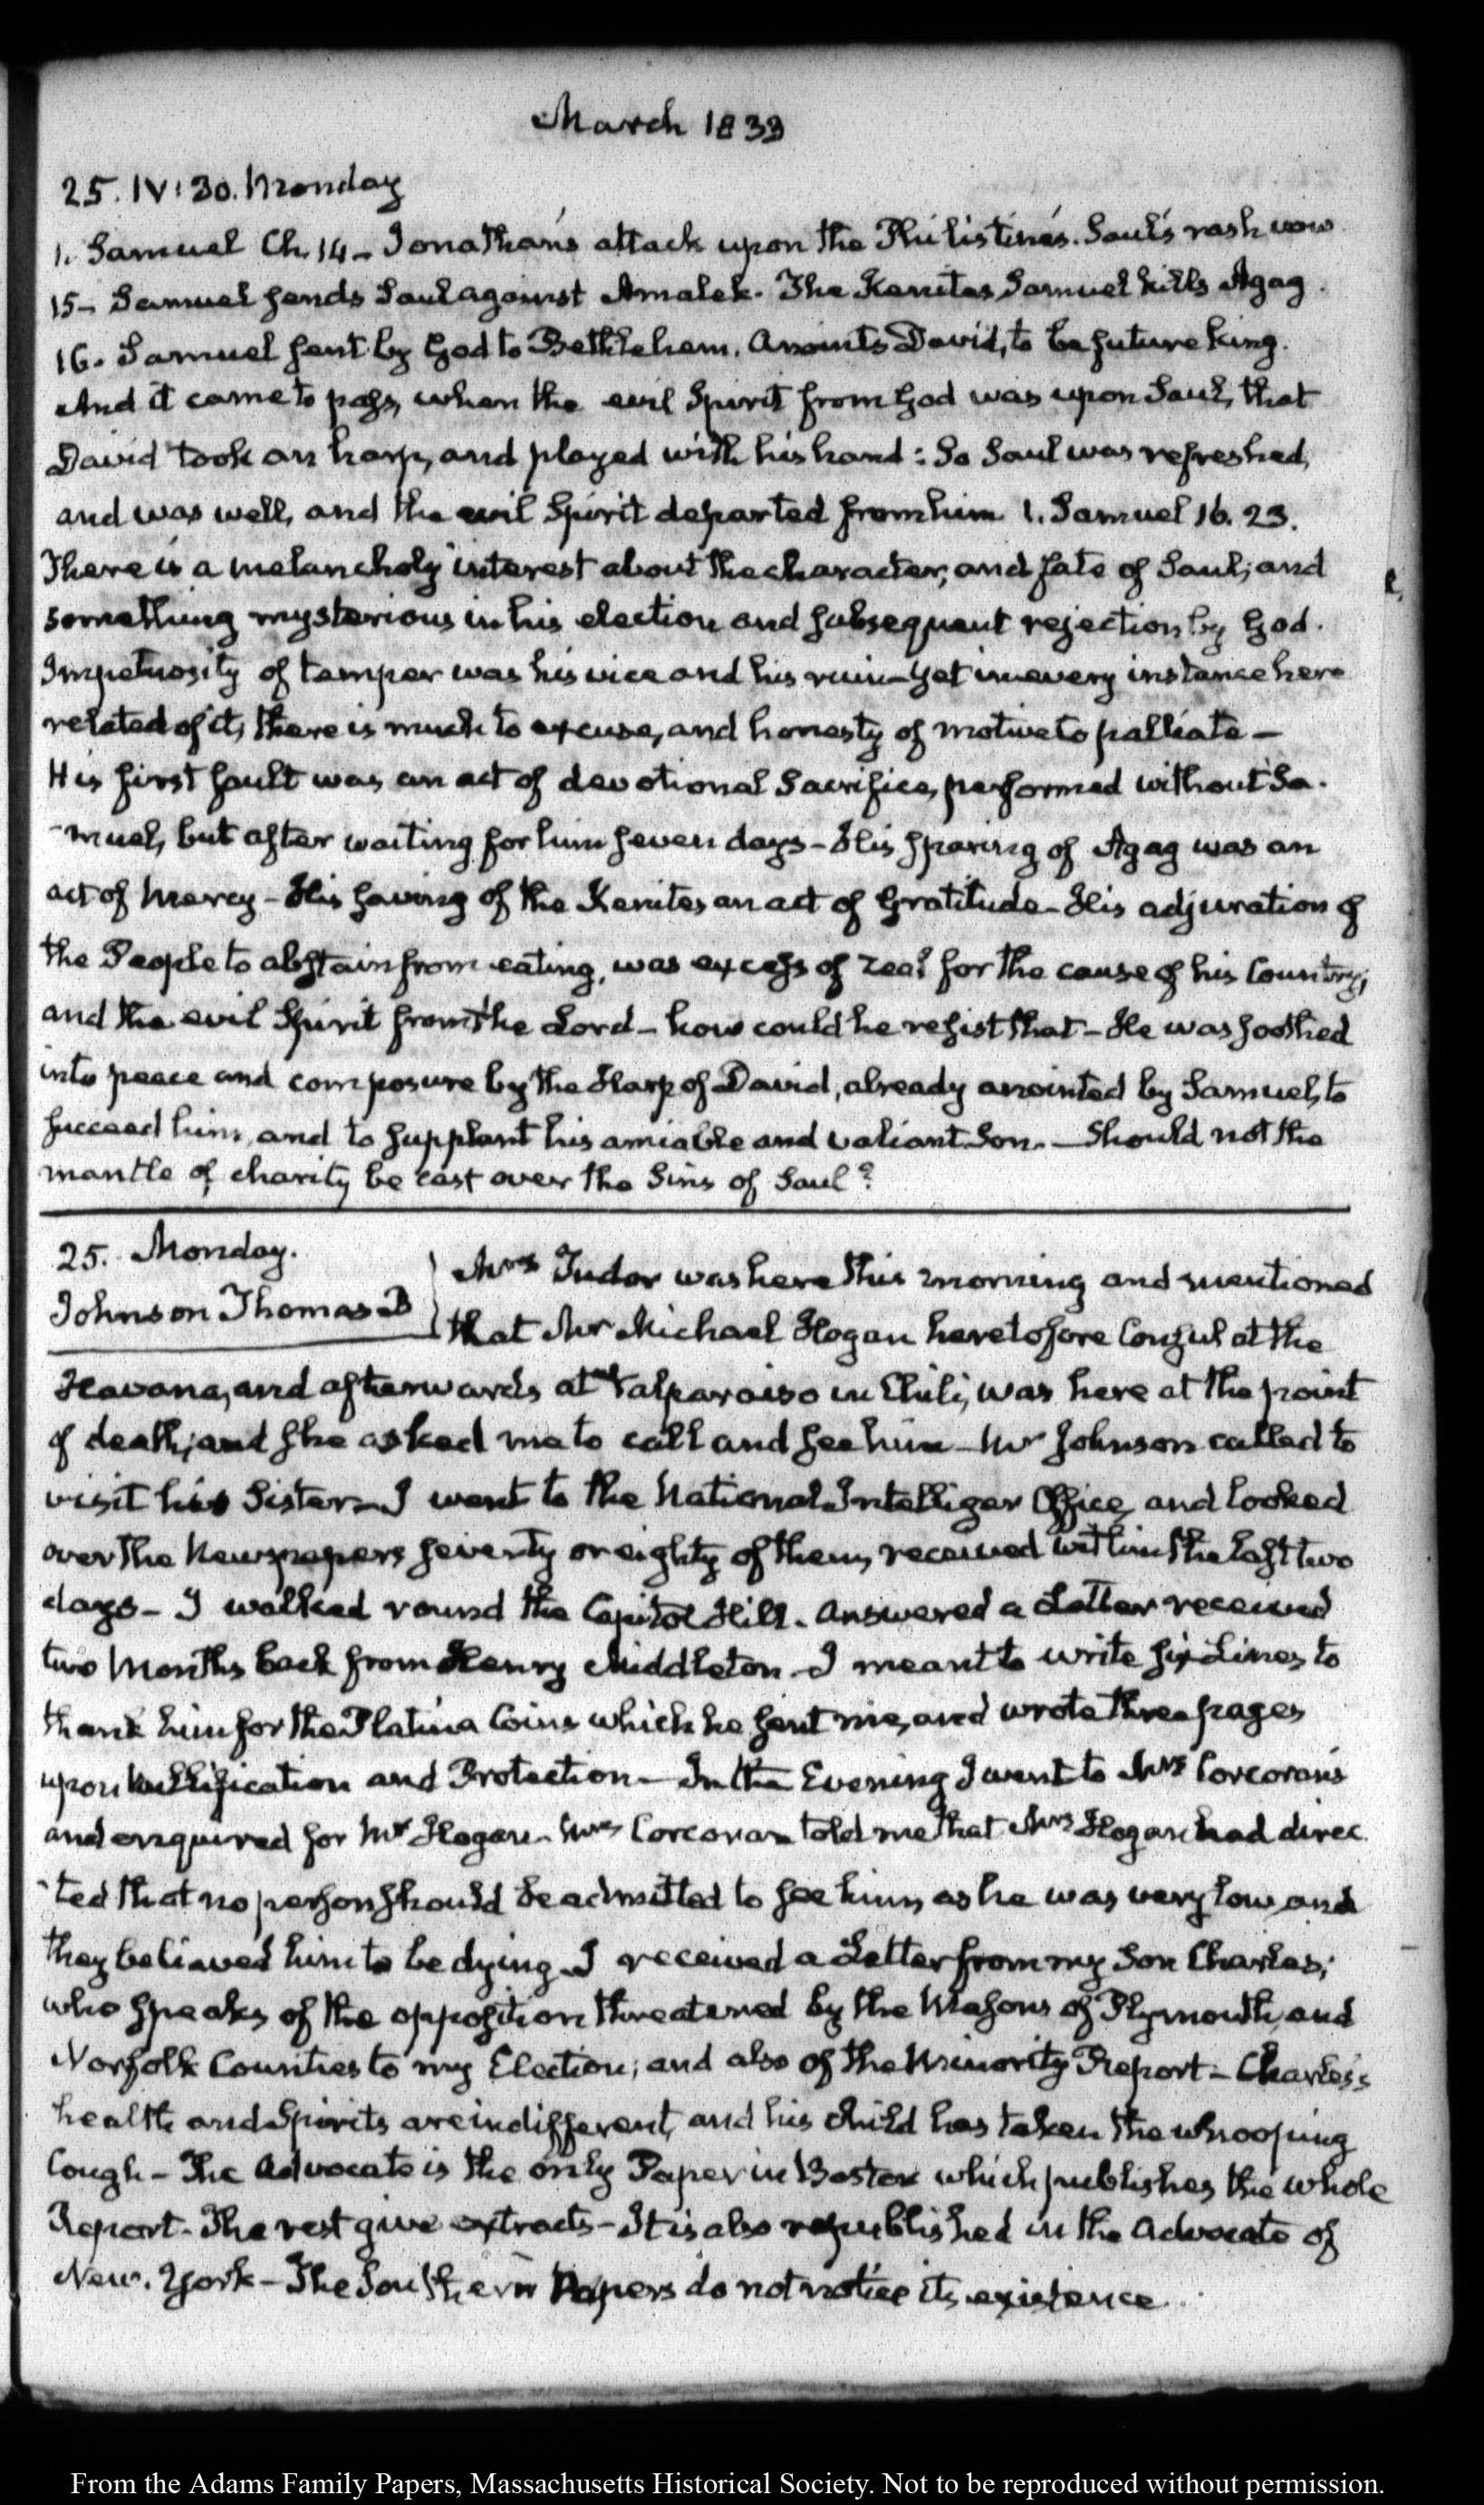 March 1833
25. IV:30. Monday
1. Samuel Ch. 14 - Jonathan's attack upon the Philistines. Saul's rash vow.
15 - Samuel sends Saul against Amalek. The Kenites Samuel kills Agag.
16. Samuel sent by God to Bethlehem. Anoints David, to be future king.
And it came to pass, when the evil Spirit from God was upon Saul, that
David took an harp, and played with his hand: So Saul was refreshed,
and was well, and the evil Spirit departed from him 1. Samuel 16. 23.
There is a melancholy interest about the character, and fate of Saul; and
something mysterious in his election and subsequent rejection by God.
Impetuosity of temper was his vice and his ruin - Yet in every instance here
related of it, there is much to excuse, and honesty of motive to palliate -
His first fault was an act of devotional Sacrifice, performed without Sa-
-muel, but after waiting for him seven days - His sparing of Agag was an
act of Mercy - His saving of the Kenites an act of Gratitude - His adjuration of
the People to abstain from eating, was excess of zeal for the cause of his Country;
and the evil Spirit from the Lord - how could he resist that - He was soothed
into peace and composure by the Harp of David, already anointed by Samuel, to
succeed him, and to supplant his amiable and valiant Son. - Should not the
mantle of charity be cast over the Sins of Saul?
25. Monday.
Johnson Thomas B
Mrs Tudor was here this morning and mentioned
that Mr Michael Hogan heretofore Consul at the
Havana, and afterwards at Valparaiso in Chili, was here at the point
of death; and she asked me to call and see him - Mr Johnson called to
visit his Sister - I went to the National Intelliger Office, and looked
over the Newspapers seventy or eighty of them, received within the last two
days - I walked round the Capitol Hill. Answered a Letter received
two Months back from Henry Middleton - I meant to write six Lines to
thank him for the Platina Coins which he sent me, and wrote three pages
upon Nullification and Protection - In the Evening I went to Mrs Corcoran's
and enquired for Mr Hogan. Mrs Corcoran told me that Mrs Hogan had direc-
-ted that no person should be admitted to see him, as he was very low, and
they believed him to be dying. I received a Letter from my Son Charles;
who speaks of the opposition threatened by the Masons of Plymouth, and
Norfolk Counties to my Election; and also of the Minority Report - Charles's
health and Spirits are indifferent, and his child has taken the whooping
Cough - The Advocate is the only Paper in Boston which publishes the whole
Report - The rest give extracts - It is also republished in the Advocate of
New-York - The Southern Papers do not notice its existence.
From the Adams Family Papers, Massachusetts Historical Society. Not to be reproduced without permission.